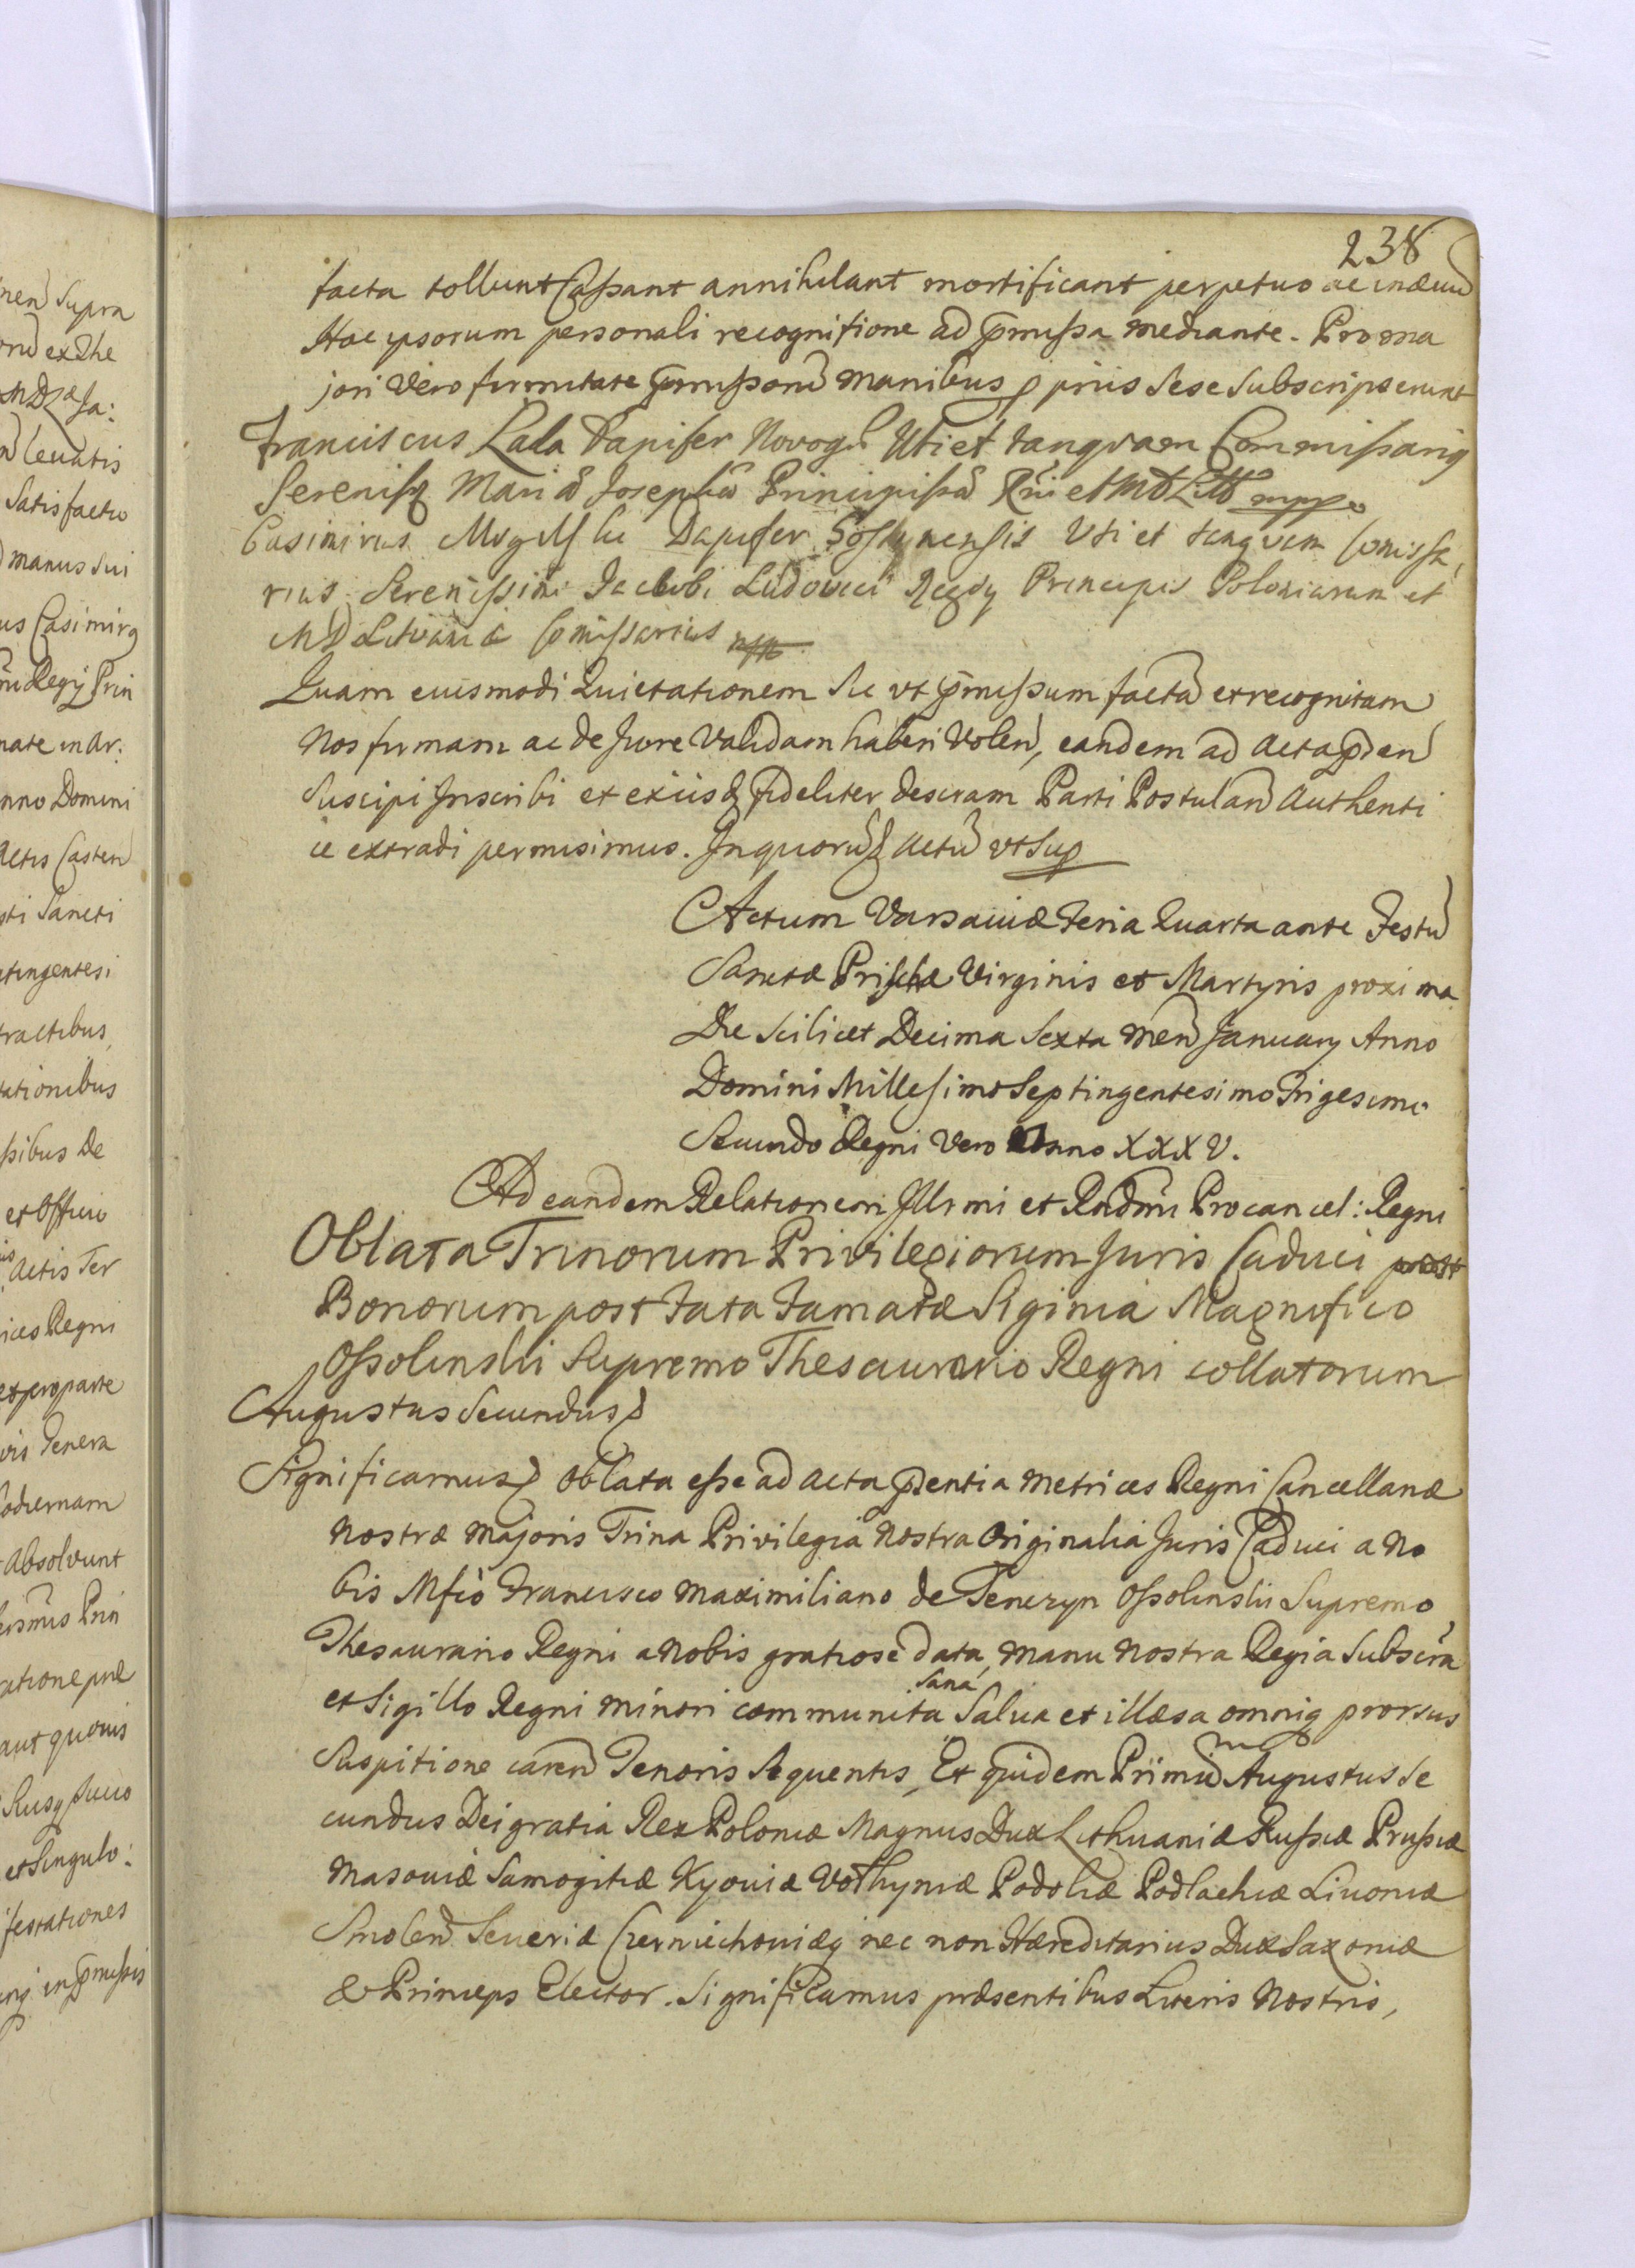 238
facta tollunt Cassant annihilant mortificant perpetuo ac in ævũ
Hac ipsorum personali recognitione ad p̃missa mediante. Pro ma
jori Vero firmitate p̃missorũ manibus p̱priis Sese Subscripserunt
Franciscus Lala Dapifer Novogr̃ Uti et tanqvam Commissariq
Serenissq Mariæ Josephæ Principissæ Rñi et MD Litt mpp
Casimirus Dapifer Gostynensis Uti et tanqvam Comissa,
rius Serenissimi Jacobi Ludovici Regÿ Principis Poloniarum et
M D Litvaniæ Comissarius mpp
Quam eiusmodi Quietationem Sic vt p̃missum facta et recognitam
Nos firmam ac de Jure Validam haberi Volen, eandem ad Acta p̃sen
Suscipi Inscribi et exiisdq fideliter descram Parti Postulan Authenti
ce extradi permisimus. In quorũ Actũ vt Sup
Actum Varsaviæ Feria Quarta ante Festũ
Sanctæ Priscæ Virginis et Martyris proxima
Die Scilicet Decima Sexta Men January Anno
Domini Millesimo Septingentesimo Trigesimo
Secundo Regni Vero Anno XXXV.
Ad eandem Relationem Illrmi et Rndmi Procancel: Regni
Oblata Trinorum Privilegiorum Juris Caduci post
Bonorum post Fata Famatæ Siginia Magnifico
Ossolinski Supremo Thesaurario Regni collatorum
Augustus Secundus
Significamus Oblata esse ad Acta p̃sentia Metrices Regni Cancellariæ
Nostræ Majoris Trina Privilegia Nostra Originalia Juris Caduci a No
bis Mfico Francisco Maximiliano de Tenczyn Ossolinski Supremo
Thesaurario Regni a Nobis gratiose data, Manu Nostra Regia Subscra
et Sigillo Regni Minori communita Sana Salva et illæsa omniq prorsus
Suspitione caren Tenoris Sequentis, Et quidem Primũ Augustus Se
cundus Dei gratia Rex Poloniæ Magnus Dux Lithuaniæ Russiæ Prussiæ
Masoviæ Samogitiæ Kyoviæ Volhyniæ Podoliæ Podlachiæ Livoniæ
Smolen Severiæ Czerniechoviæq nec non Hæreditarius Dux Saxoniæ
& Princeps Elector. Significamus præsentibus Literis Nostris,